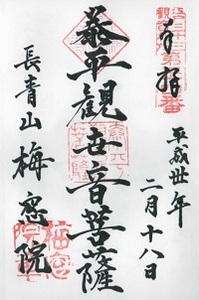 奉拝
平成丗年
二月十八日
泰平観世音菩薩
長青山梅窓院